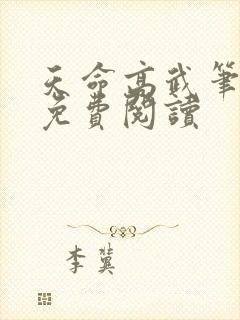 天命高武筆
免費閱讀
李冀